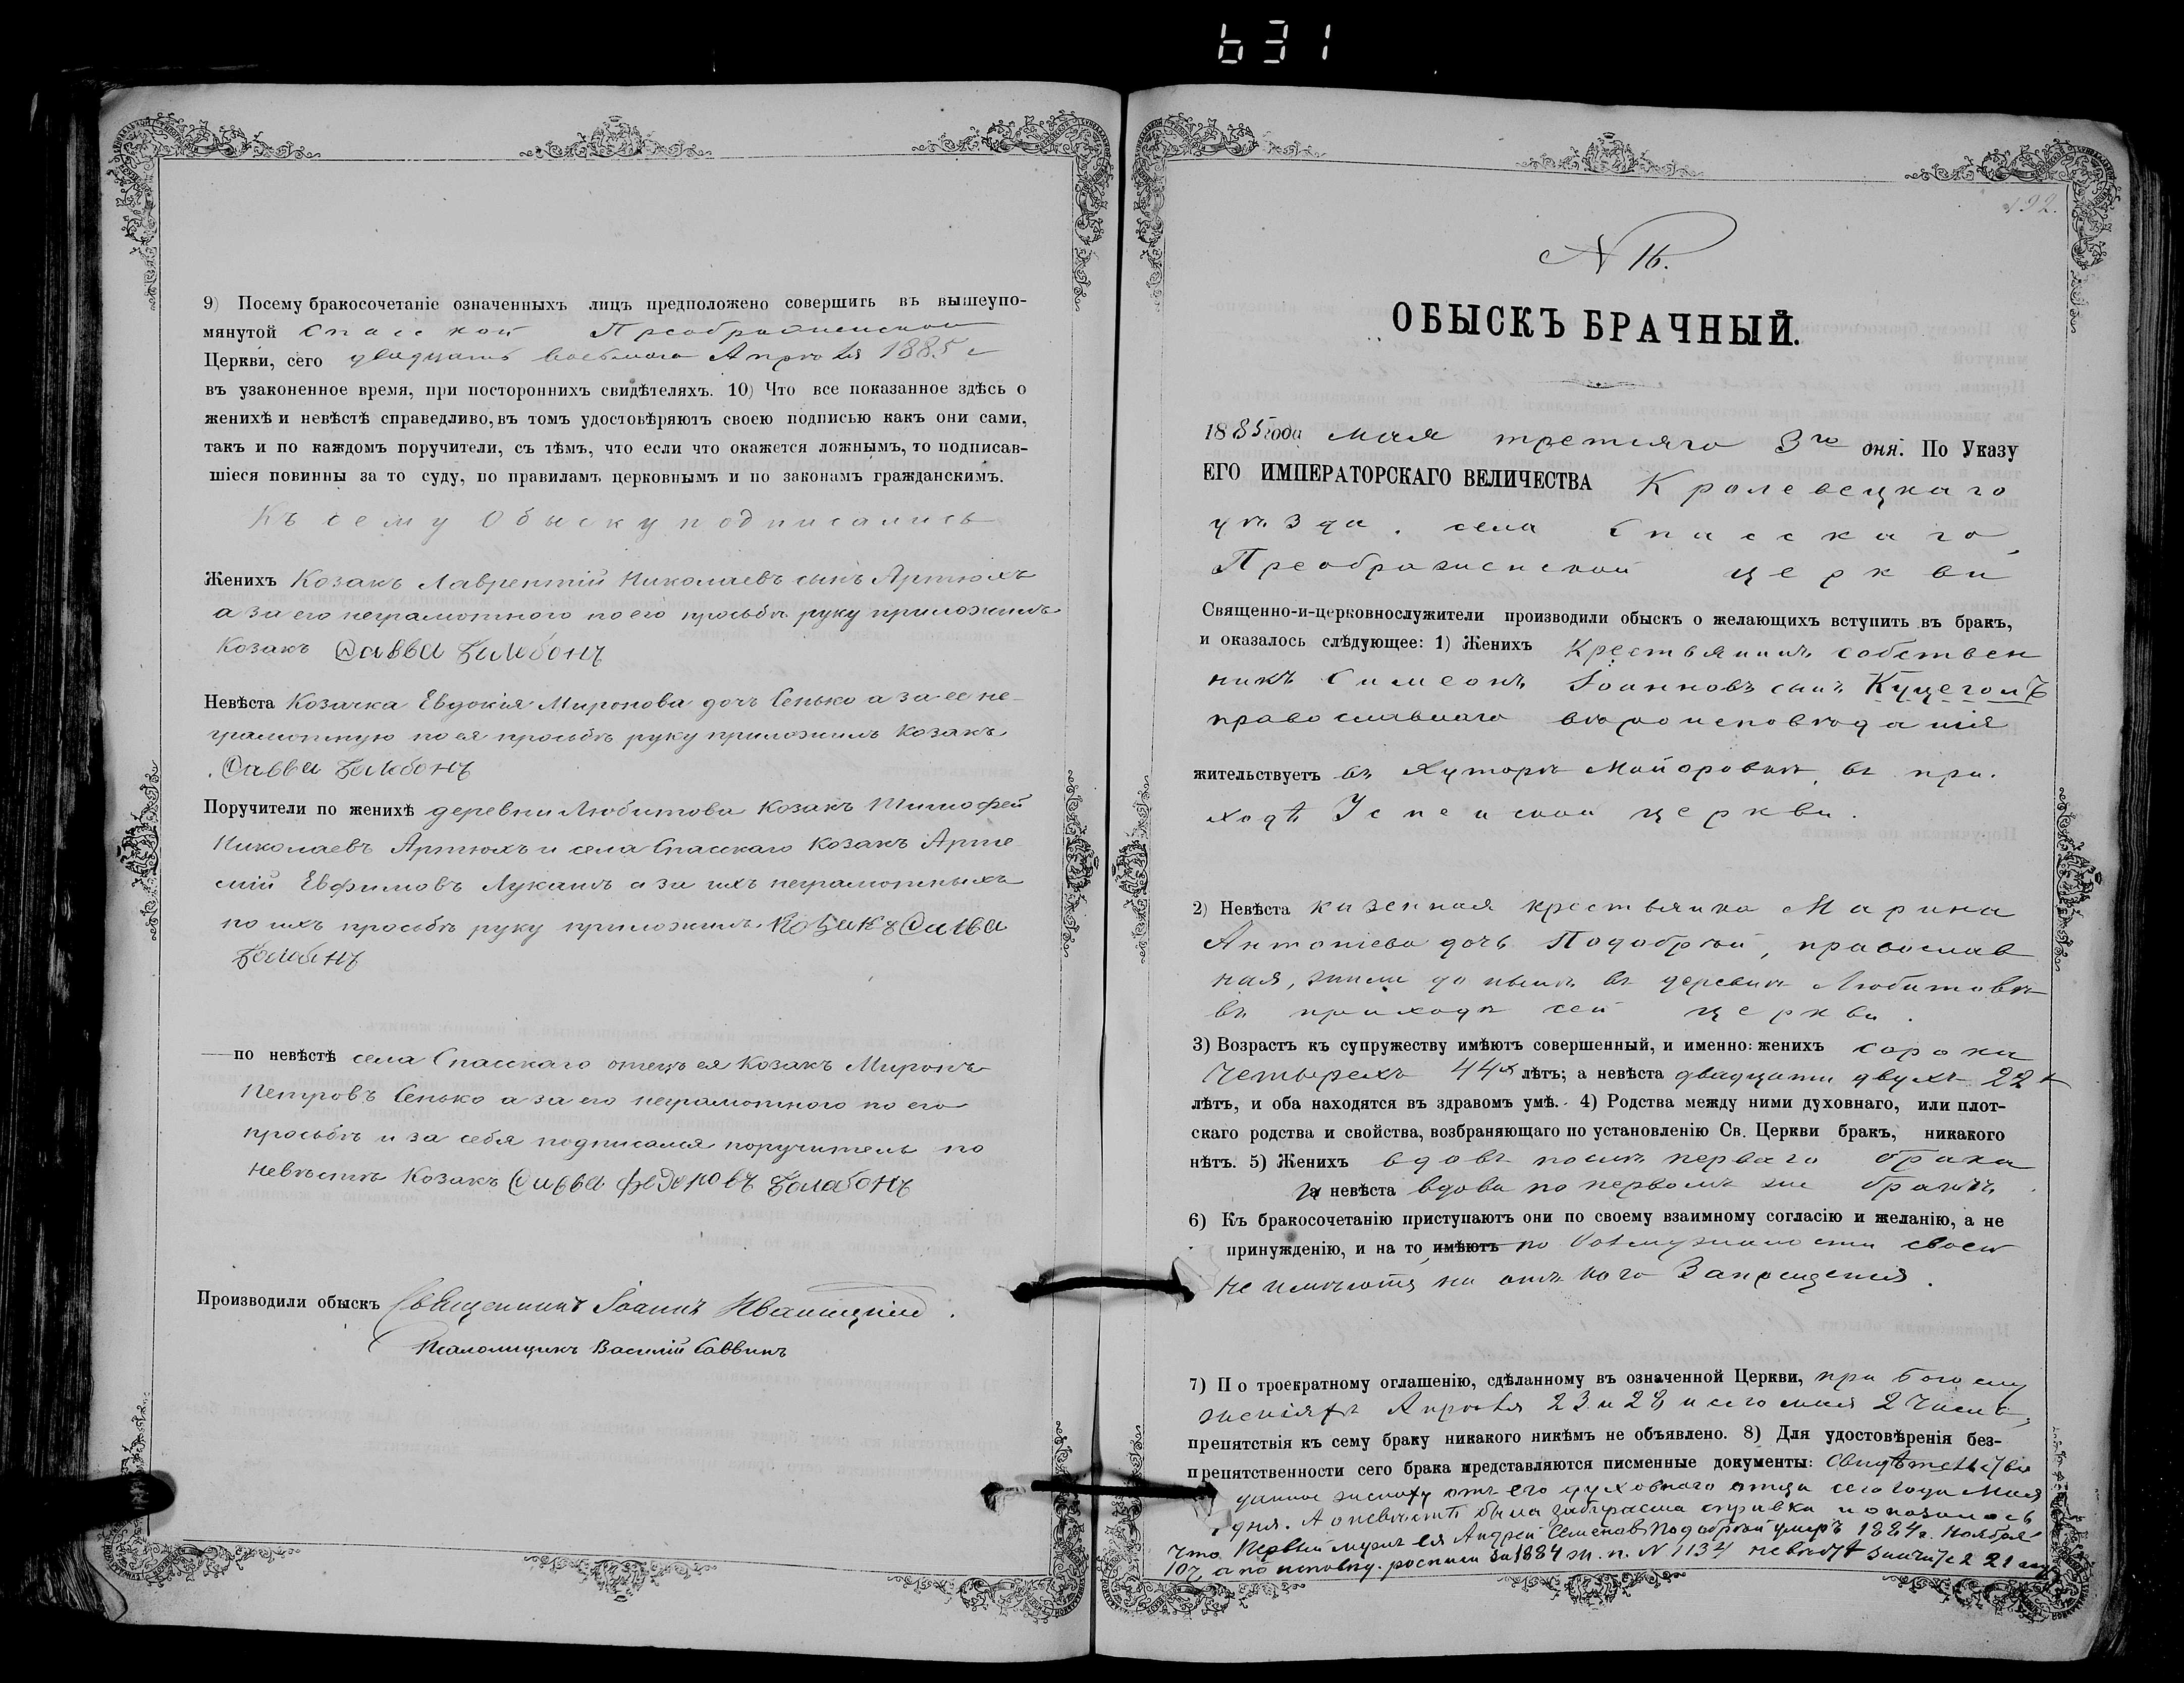 631
9) Посему бракосочетаніе означенныхъ лицъ предположено совершить въ вышеупо-
мянутой Спасской Преображенской
Церкви, сего двадцать восьмаго Апрѣля 1885 г
въ узаконенное время, при постороннихъ свидѣтеляхъ. 10) Что все показанное здѣсь о
женихѣ и невѣстѣ справедливо, въ томъ удостовѣряютъ своею подписью какъ они сами,
такъ и по каждомъ поручители, съ тѣмъ, что если что окажется ложнымъ, то подписав-
шіеся повинны за то суду, по правиламъ церковнымъ и по законамъ гражданскимъ.
Къ сему Обыску подписались
Женихъ Козакъ Лаврентій Николаевъ сынъ Артюхъ
а за его неграмотного по его просьбѣ руку приложилъ
Козакъ Савва
Невѣста Козачка Евдокія Миронова дочь Сенько а за ее не-
грамотную по ея просьбѣ руку приложилъ Козакъ
Савва
Поручители по женихѣ деревни Любитова Козакъ Тимофей
Николаевъ Артюхъ и села Спасскаго Козакъ Арте-
мій Евфимовъ а за ихъ неграмотныхъ
по ихъ просьбѣ руку приложилъ Козакъ Савва
по невѣстѣ села Спасскаго отецъ ея Козакъ Миронъ
Петровъ Сенько а за его неграмотного по его
просьбѣ и за себя подписался поручитель по
Невѣстѣ Козакъ Савва Федоровъ
Производили обыскъ Священникъ Іоаннъ
Псаломщикъ Василій Саввинъ
192.
N 16.
ОБЫСКЪ БРАЧНЫЙ.
1885 года мая третяго 3го дня. По Указу
ЕГО ИМПЕРАТОРСКАГО ВЕЛИЧЕСТВА Кролевецкаго
уѣзда, села Спасскаго,
Преображенской церкви
Священно-и-церковнослужители производили обыскъ о желающихъ вступить въ бракъ,
и оказалось слѣдующее: 1) Женихъ Крестьянинъ собствен
никъ Симеонъ Іоанновъ сынъ Куцеголъ
православнаго вѣроисповѣданія
жительствуетъ въ Хуторѣ Майоровкѣ, въ при-
ходѣ Успенской церкви.
2) Невѣста казенная крестьянка Марина
Антоніева дочь Подобрѣй, православ
ная, жила до нынѣ въ деревнѣ Любитовѣ
въ приходѣ сей церкви.
3) Возрастъ къ супружеству имѣютъ совершенный, и именно: женихъ сорока
четырехъ 44х лѣтъ; а невѣста двадцати двухъ 22х
лѣтъ, и оба находятся въ здравомъ умѣ. 4) Родства между ними духовнаго, или плот-
скаго родства и свойства, возбраняющаго по установленію Св. Церкви бракъ, никакого
нѣтъ. 5) Женихъ вдовъ послѣ перваго брака
а невѣста вдова по первомъ же бракѣ.
6) Къ бракосочетанію приступаютъ они по своему взаимному согласію и желанію, а не
принужденію, и на то имѣютъ по возмужалости своей
не имѣютъ ни отъ кого Запрещенія.
7) По троекратному оглашенію, сдѣланному въ означенной Церкви, при богослу
женіяхъ Апрѣля 23 и 28 и сего мая 2 числъ,
препятствія къ сему браку никакого никѣмъ не объявлено. 8) Для удостовѣренія без-
препятственности сего брака представляются писменные документы: свидѣтельство
данное жениху отъ его духовнаго отца сего года Мая
дня. А о невѣстѣ была забираема справка и оказалось
что Первый мужъ ея Андрей Семеновъ Подобрѣй умеръ 1884 г. Ноября
10ч, а по исповѣд. росписи за 1884 ж. п. N 1134 невѣстѣ